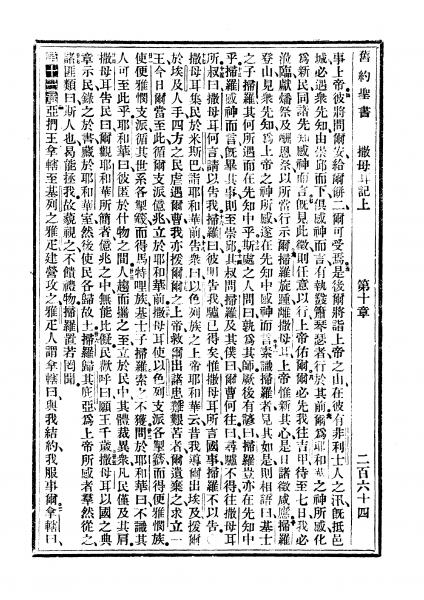 舊約聖書　撒母耳記上　第十章　二百六十四
事上帝彼將問爾安給爾餅二爾可受焉是後爾將詣上帝之山在彼有非利士人之汛旣抵邑
城必遇衆先知由崇邱而下俱感神而言有執鼗簫琴瑟者行於其前爾爲耶和華之神所感化
爲新民同諸先知感神而言旣見此徵則任意以行上帝佑爾爾必先我往吉甲待至七日我必
涖臨獻燔祭及酬恩祭以所當行示爾掃羅旋踵離撒母耳上帝惟新其心是日諸徵咸應掃羅
登山見衆先知爲上帝之神所感遂在先知中感神而言素識掃羅者見其如是則相語曰基士
之子掃羅其何所遇而在先知中乎斯處之人問曰孰爲其師厥後有諺曰掃羅豈亦在先知中
乎掃羅感神而言旣畢其事則至崇邱其叔問掃羅及其僕曰爾曹何往曰尋驢不得往撒母耳
所叔曰撒母耳何言請以告我掃羅曰彼明告我驢已得矣惟撒母耳所言國事掃羅不以告
撒母耳集民於米斯巴詣耶和華前告衆曰以色列族之上帝耶和華云昔我導爾出埃及援爾
於埃及人手四方之民虐遇爾曹我亦援爾爾之上帝救爾出諸患難艱苦者爾遺棄之求立一
王今日爾當至此循爾支派億兆立於耶和華前撒母耳使以色列支派各掣籤而得便雅憫族
使便雅憫支派循其世系各掣籤而得馬特哩族基士子掃羅索之不獲問於耶和華曰不識其
人可至此乎耶和華曰彼匿於什物之間人趨而攜之至立於民中其體裁異衆凡民僅及其肩
撒母耳告民曰爾觀耶和華所簡者億兆之中無能比儗民歡呼曰願王千歲撒母耳以國之典
章示民錄之於書藏於耶和華室然後使民各歸故土掃羅歸其庇亞爲上帝所感者羣然從之
諸匪類曰斯人也曷能拯我故藐視之不饋禮物掃羅置若罔聞
第十一章亞捫王拿轄至基列之雅疋建營攻之雅疋人謂拿轄曰與我結約我服事爾拿轄曰